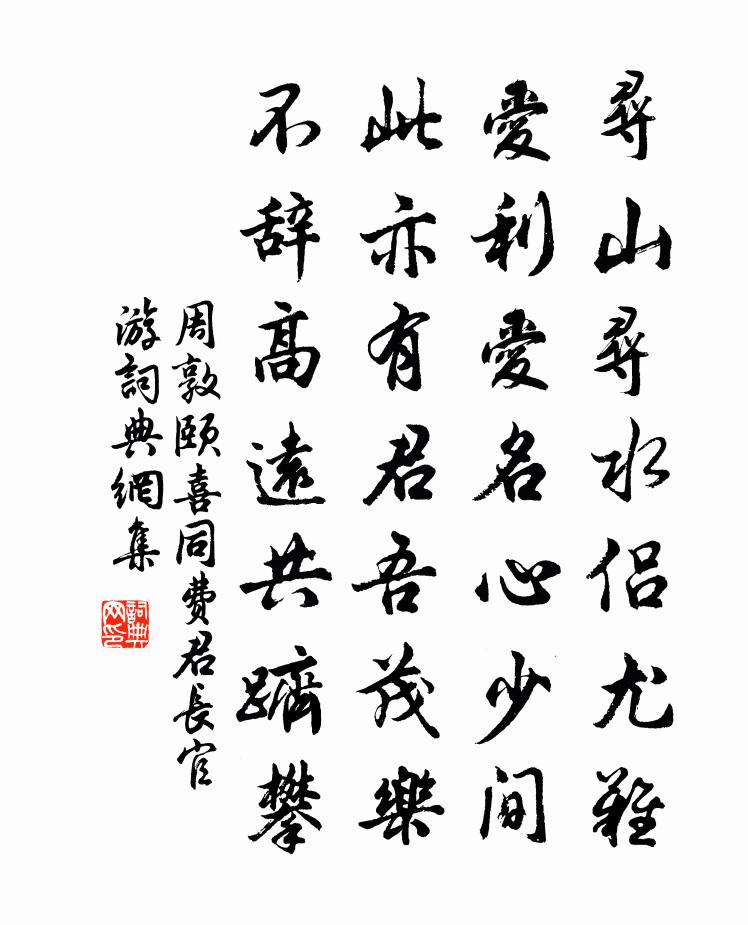 尋山尋水侶尤難
愛利愛名心少閒
此亦有君吾茂樂
不辞高遠共躋攀
周敦颐喜同费君長官
游詞典網集
詞典网印